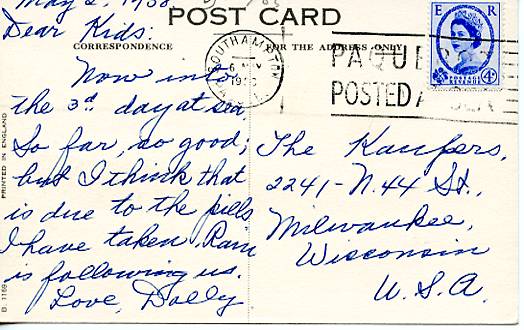 May 2, 1958
POST CARD
Dear Kids:
CORRESPONDENCE
FOR THE ADDRESS ONLY
Now into
the 3rd day at sea
So far, so good;
but I think that
is due to the pills
I have taken. Rain
is following us.
Love, Dolly
The Kaufers,
2241-N. 44 St.,
Milwaukee,
Wisconsin
U.S.A.
SOUTHAMPTON
PAQUE
POSTED A SEA
E R
POSTAGE
REVENUE
4d
PRINTED IN ENGLAND
B 1169